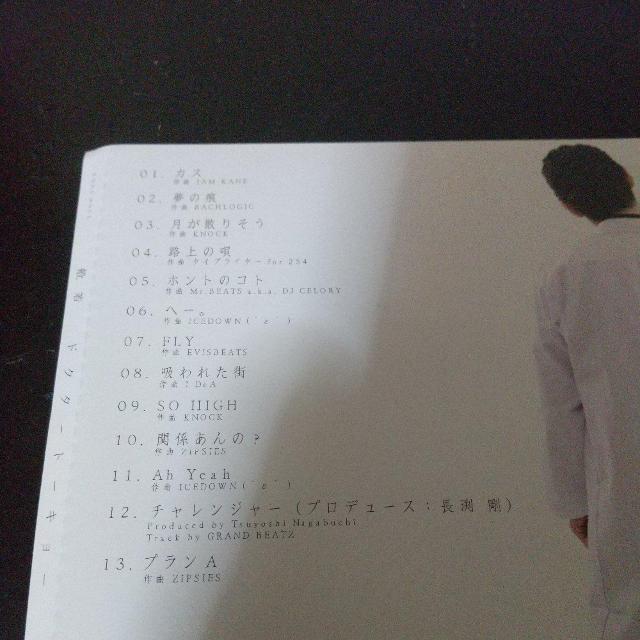 01. カス
作曲 IAM KANE
02. 夢の痕
作曲 BACHLOGIC
03. 月が散りそう
作曲 KNOCK
04. 路上の唄
作曲 イプライヤー for 254
05. ホントのコト
作曲 Mr.BEATS a.k.a. DJ CELORY
06. へー。
作曲 ICEDOWN (´ε｀)
07. FLY
作曲 EVISBEATS
08. 吸われた街
作曲 I-DeA
09. SO HIGH
作曲 KNOCK
10. 関係あんの?
作曲 ZIPSIES
11. Ah Yeah
作曲 ICEDOWN (´ε｀)
12. チャレンジャー (プロデュース:長渕 剛)
Produced by Tsuyoshi Nagabuchi
Track by GRAND BEATZ
13. プランA
作曲 ZIPSIES